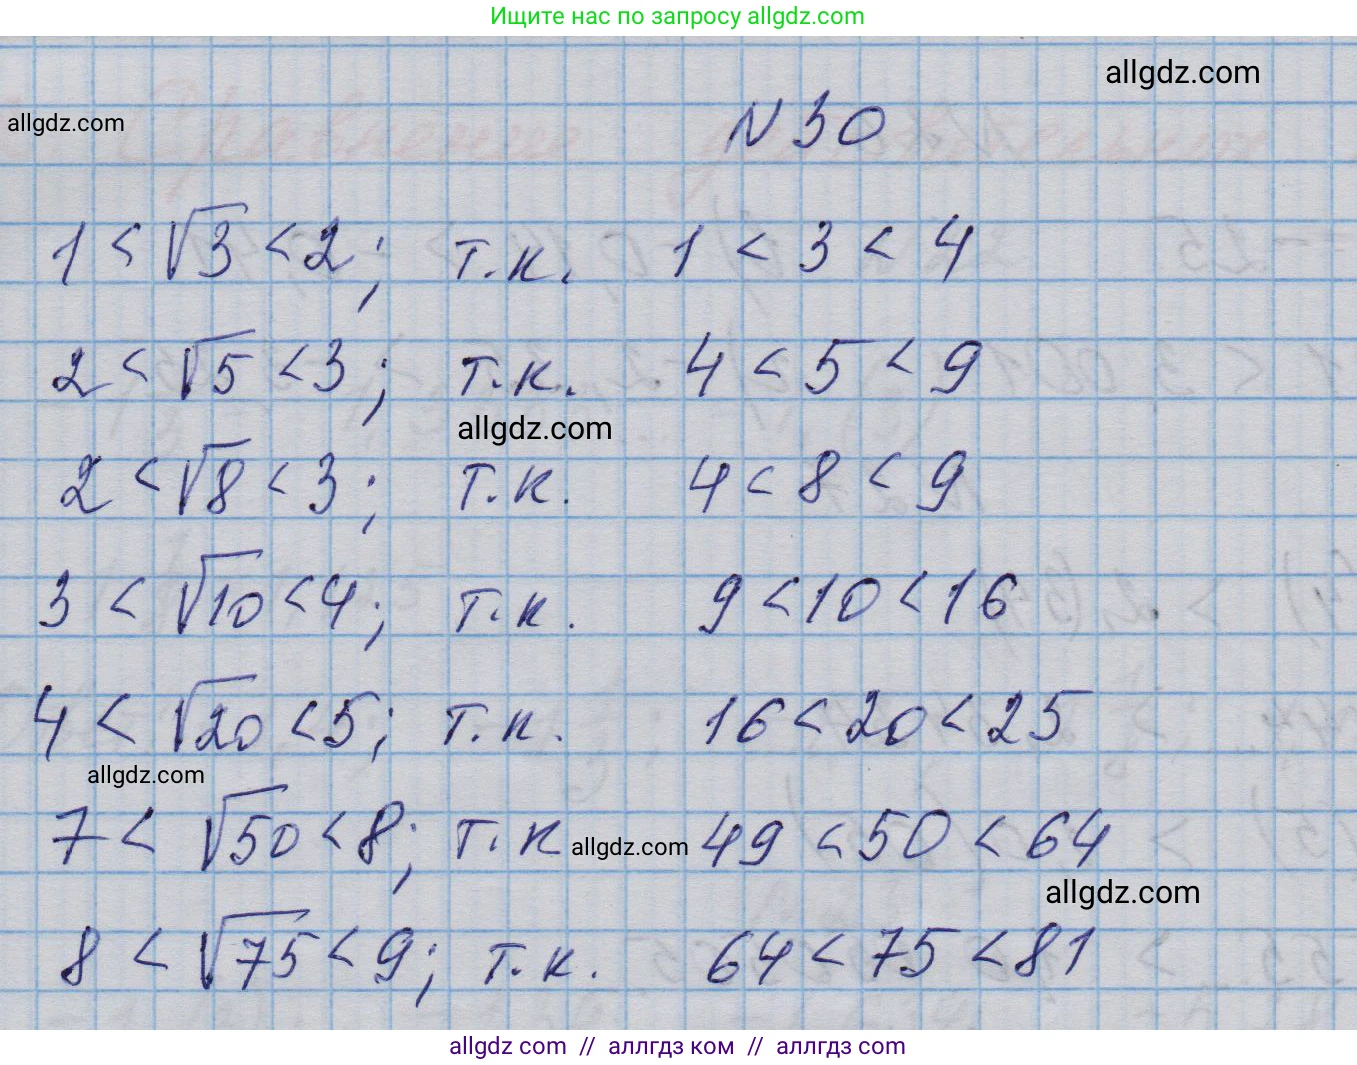 Ищите нас по запросу allgdz.com
allgdz.com
allgdz.com
N 30
1 < √3 < 2; т.к. 1 < 3 < 4
2 < √5 < 3; т.к. 4 < 5 < 9
allgdz.com
2 < √8 < 3; т.к. 4 < 8 < 9
3 < √10 < 4; т.к. 9 < 10 < 16
4 < √20 < 5; т.к. 16 < 20 < 25
allgdz.com
7 < √50 < 8; т.к 49 < 50 < 64
allgdz.com
allgdz.com
8 < √75 < 9; т.к. 64 < 75 < 81
allgdz.com // аллгдз ком // аллгтз com